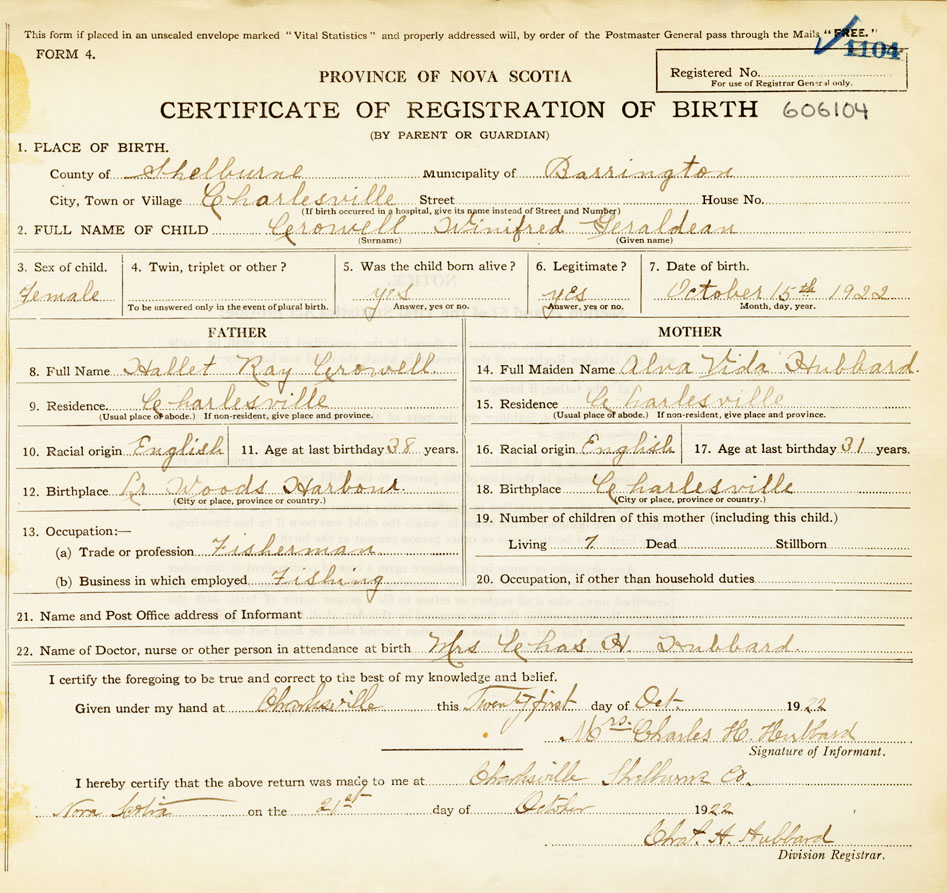 This form if placed in an unsealed envelope marked "Vital Statistics" and properly addressed will, by order of the Postmaster General pass through the Mails "FREE."
FORM 4.
1104
Registered No.
For use of Registrar General only.
PROVINCE OF NOVA SCOTIA
CERTIFICATE OF REGISTRATION OF BIRTH 606104
(BY PARENT OR GUARDIAN)
1. PLACE OF BIRTH.
County of Shelburne Municipality of Barrington
City, Town or Village Charlesville Street House No.
(If birth occurred in a hospital, give its name instead of Street and Number)
2. FULL NAME OF CHILD Crowell Winifred Geraldean
(Surname) (Given name)
3. Sex of child. 4. Twin, triplet or other? 5. Was the child born alive? 6. Legitimate? 7. Date of birth.
Female yes yes October 15th 1922
To be answered only in the event of plural birth. Answer, yes or no. Answer, yes or no. Month, day, year.
FATHER MOTHER
8. Full Name Hallet Ray Crowell. 14. Full Maiden Name Alva Vida Hubbard.
9. Residence. Charlesville 15. Residence Charlesville
(Usual place of abode.) If non-resident, give place and province. (Usual place of abode.) If non-resident, give place and province.
10. Racial origin English 11. Age at last birthday 38 years. 16. Racial origin English 17. Age at last birthday 31 years.
12. Birthplace Lr Woods Harbour 18. Birthplace Charlesville
(City or place, province or country.) (City or place, province or country.)
13. Occupation:— 19. Number of children of this mother (including this child.)
(a) Trade or profession Fisherman Living 7 Dead Stillborn
(b) Business in which employed Fishing 20. Occupation, if other than household duties
21. Name and Post Office address of Informant
22. Name of Doctor, nurse or other person in attendance at birth Mrs Chas H. Hubbard.
I certify the foregoing to be true and correct to the best of my knowledge and belief.
Given under my hand at Charlesville this Twenty first day of Oct. 1922
Mrs. Charles H. Hubbard
Signature of Informant.
I hereby certify that the above return was made to me at Charlsville Shelburne Co.
Nova Scotia on the 21st day of October 1922
Chas. H. Hubbard
Division Registrar.